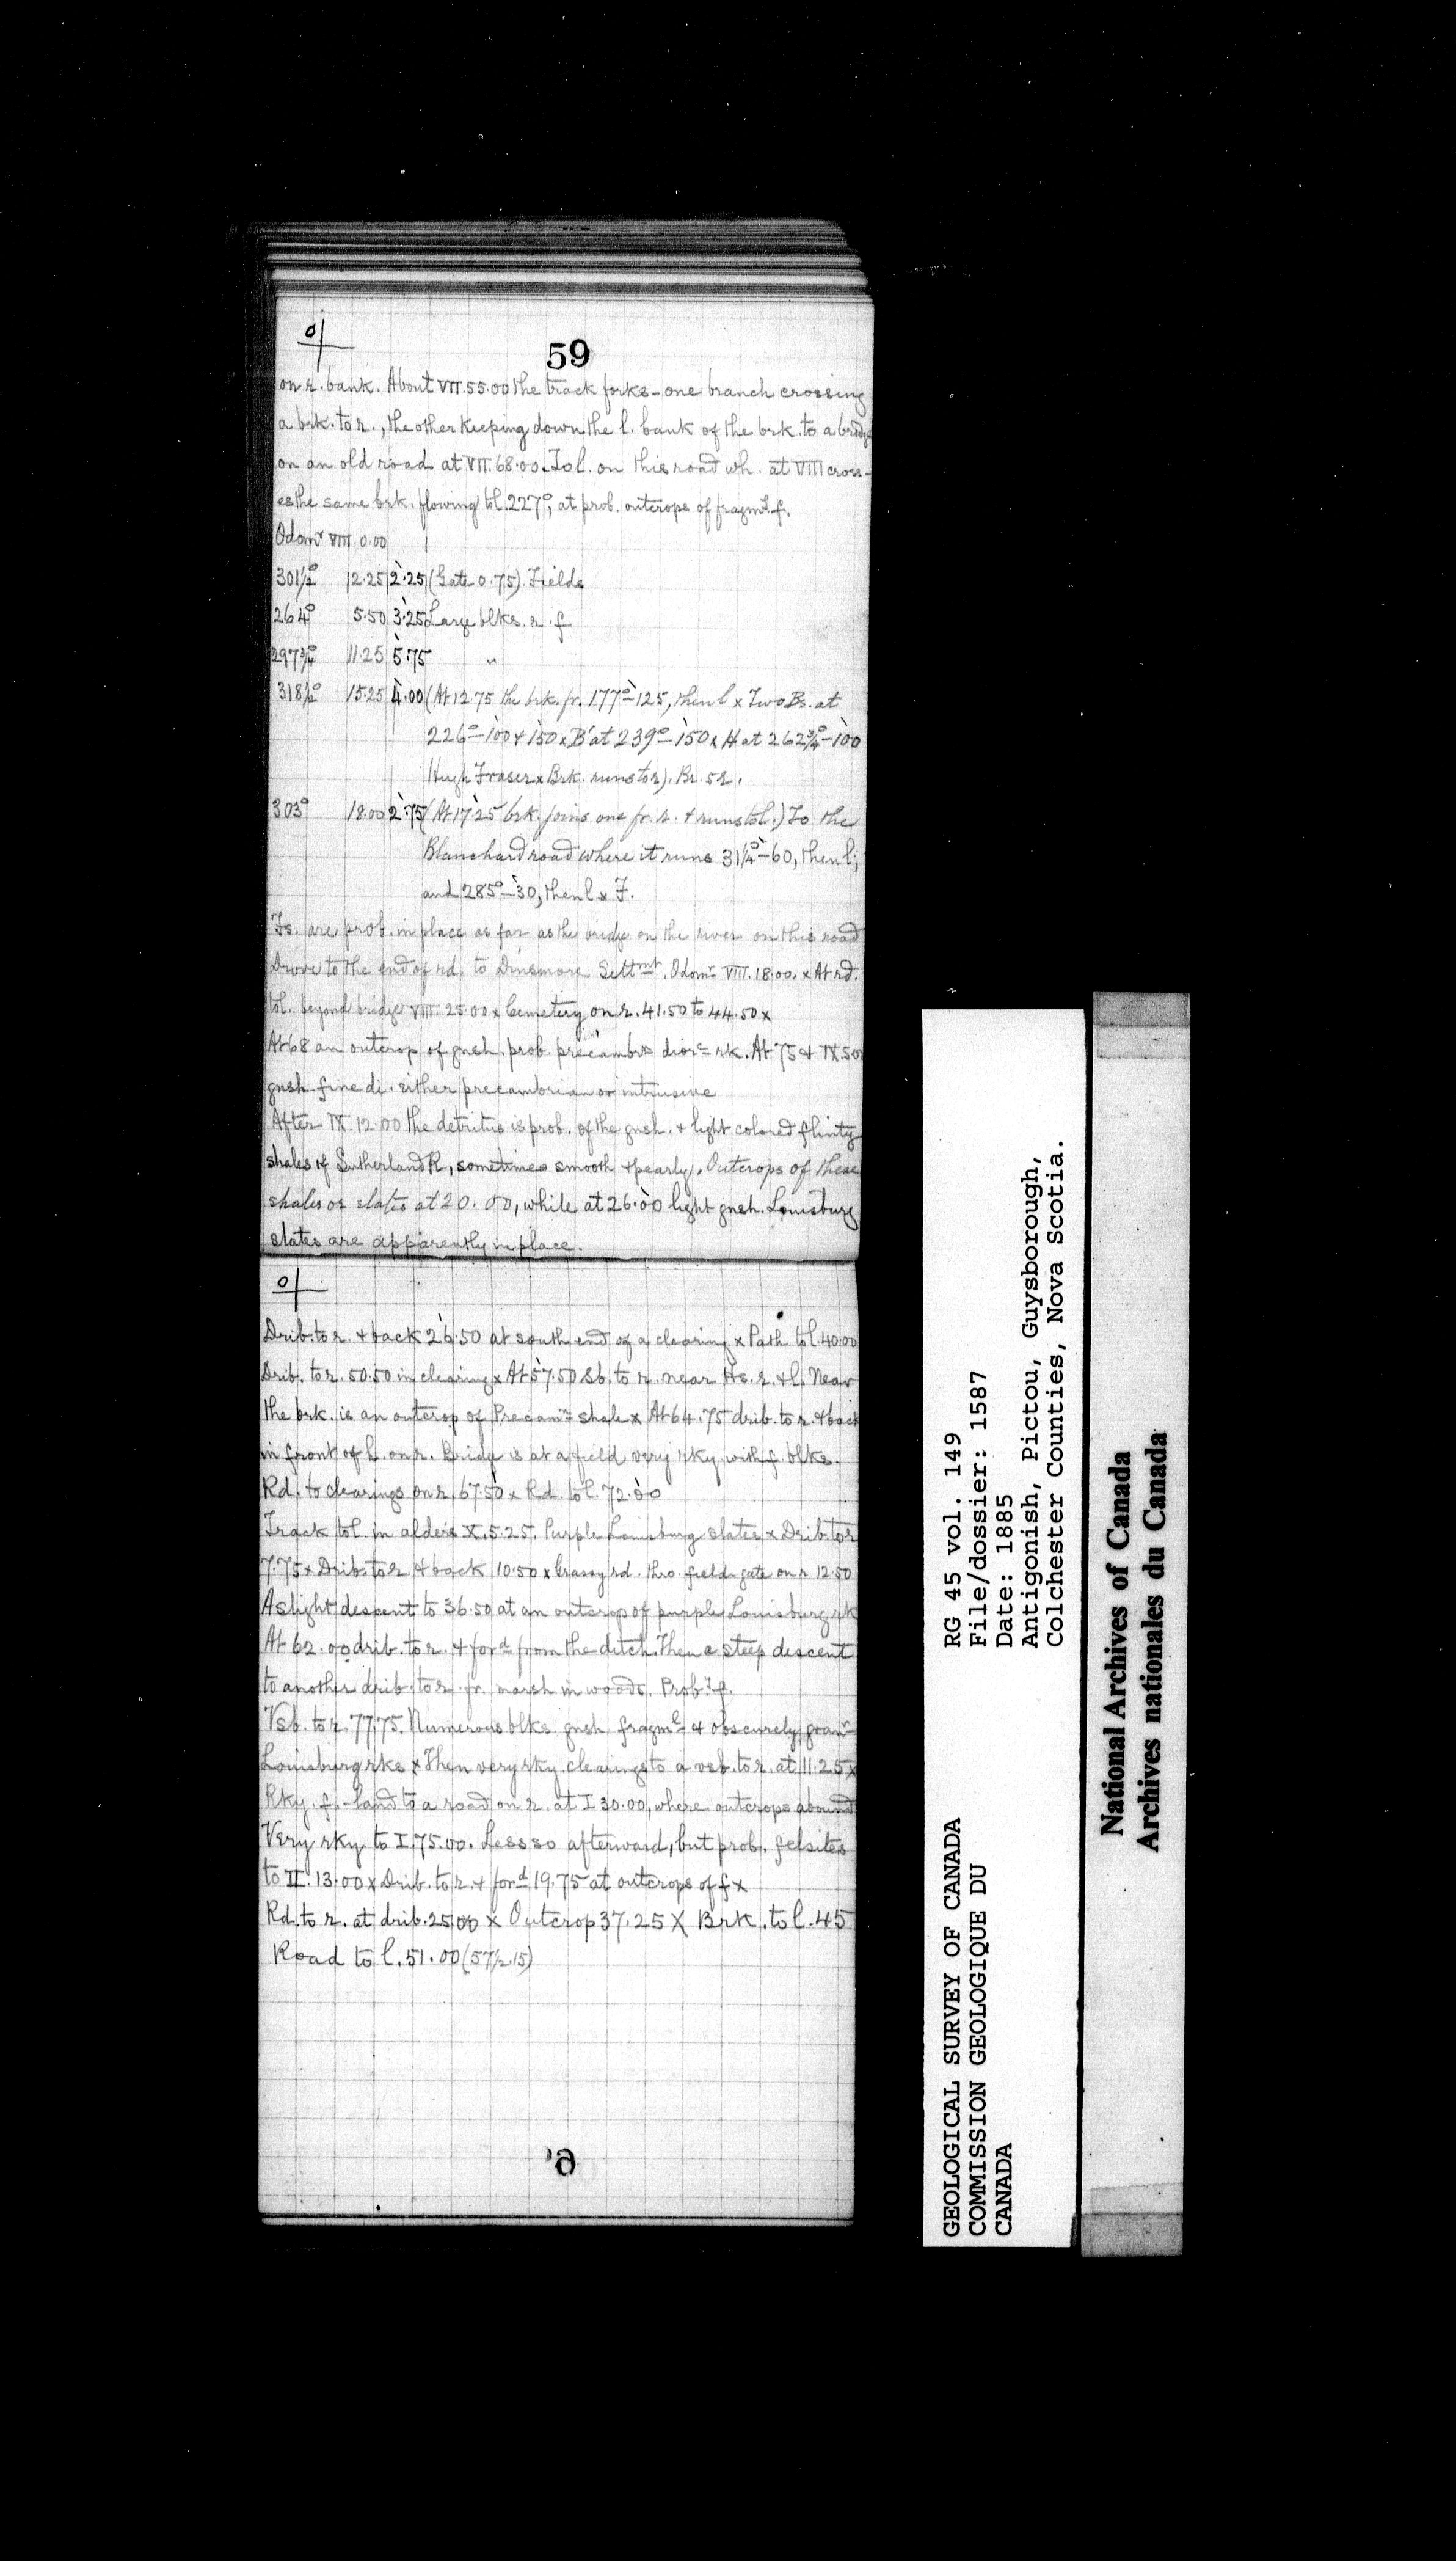 59
on r. bank. About VII.55.00 the track forks - one branch crossing
a brk. to r., the other keeping down the l. bank of the brk. to a bridge
on an old road at VII.68.00. To l. on this road wh. at VIII cross-
es the same brk. flowing to l. 227°, at prob. outcrops of fragmt. f.
Odomr VIII. 0.00
301½° 12.25 2.25 (Gate 0.75). Fields
264° 5.50 3.25 Large blks. r. f
297¾° 11.25 5.75 "
318½° 15.25 4.00 (At 12.75 the brk. fr. 177°-125, then l x Two Bs. at
226°-100 & 150 x B at 239°-150 x H at 262¾°-100
Hugh Fraser x Brk. runs to r). Br. 52.
303° 18.00 2.75 (At 17.25 brk. joins one fr. r. & runs to l.) To the
Blanchard road where it runs 31¼°-60, then l;
and 285°-30, then l x F.
Fs. are prob. in place as far as the bridge on the river on this road
Drove to the end of rd. to Dinsmore Settmt. Odomr VIII. 18.00. x At rd.
to l. beyond bridge VIII. 25.00 x Cemetery on r. 41.50 to 44.50 x
At 68 an outcrop of gnsh. prob. precambn dioric rk. At 75 & IX.50
gnsh fine di. either precambrian or intrusive
After IX 12.00 the detritus is prob. of the gnsh. & light colored flinty
shales of Sutherland R, sometimes smooth & pearly. Outcrops of these
shales or slates at 20.00, while at 26.00 light gnsh. Louisburg
slates are apparently in place.
Drib. to r. & back 26.50 at south end of a clearing x Path to l. 40.00
Drib. to r. 50.50 in clearing x At 57.50 Sb. to r. near Hs. r. & l. Near
the brk. is an outcrop of Precamn shale x At 64.75 drib. to r. & back
in front of h. on r. Bridge is at a field very rky with f. blks.
Rd. to clearings on r. 67.50 x Rd. to l. 72.00
Track to l. in alders X.5.25. Purple Louisburg slates x Drib. to r
7.75 x Drib. to r & back 10.50 x Grassy rd. thro. field gate on r 12.50
A slight descent to 36.50 at an outcrop of purple Louisburg rk
At 62.00 drib. to r. & ford from the ditch. Then a steep descent
to another drib. to r. fr. marsh in woods. Prob. f.
Vsb. to r. 77.75. Numerous blks gnsh fragml & obscurely granr
Louisburg rks x Then very rky clearings to a vsb. to r. at 11.25 x
Rky f. -land to a road on r. at I 30.00, where outcrops abound
Very rky to I.75.00. Less so afterward, but prob. felsites
to II. 13.00 x Drib. to r. & ford 19.75 at outcrops of f x
Rd. to r. at drib. 25.00 x Outcrop 37.25 X Brk. to l. 45
Road to l. 51.00 (57½.15)
GEOLOGICAL SURVEY OF CANADA
COMMISSION GEOLOGIQUE DU
CANADA
RG 45 vol. 149
File/dossier: 1587
Date: 1885
Antigonish, Pictou, Guysborough,
Colchester Counties, Nova Scotia.
National Archives of Canada
Archives nationales du Canada